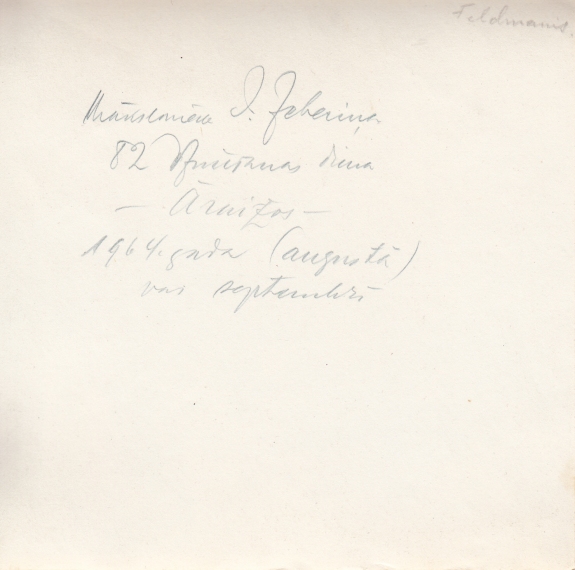 Feldmanis.
Mākslinieka J. Zeberiņa
82 dzimšanas diena
— Āraižos —
1964. gada (augustā)
vai septembrī